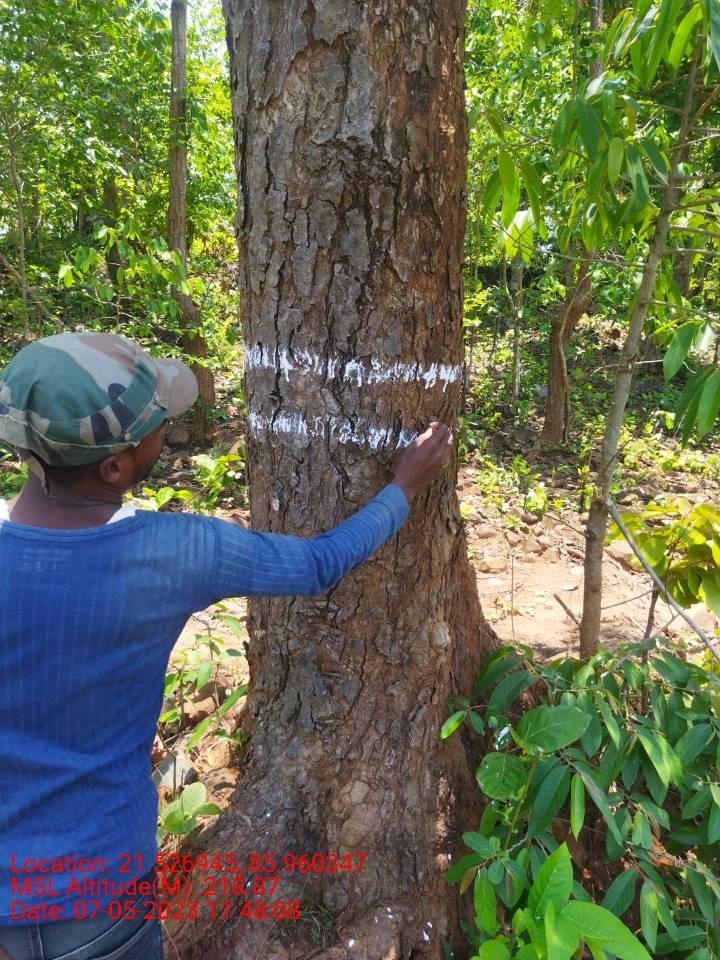 Location: 21.526945, 85.960347
MSL Altitude(M): 218.87
Date: 07-05-2023 11:48:08